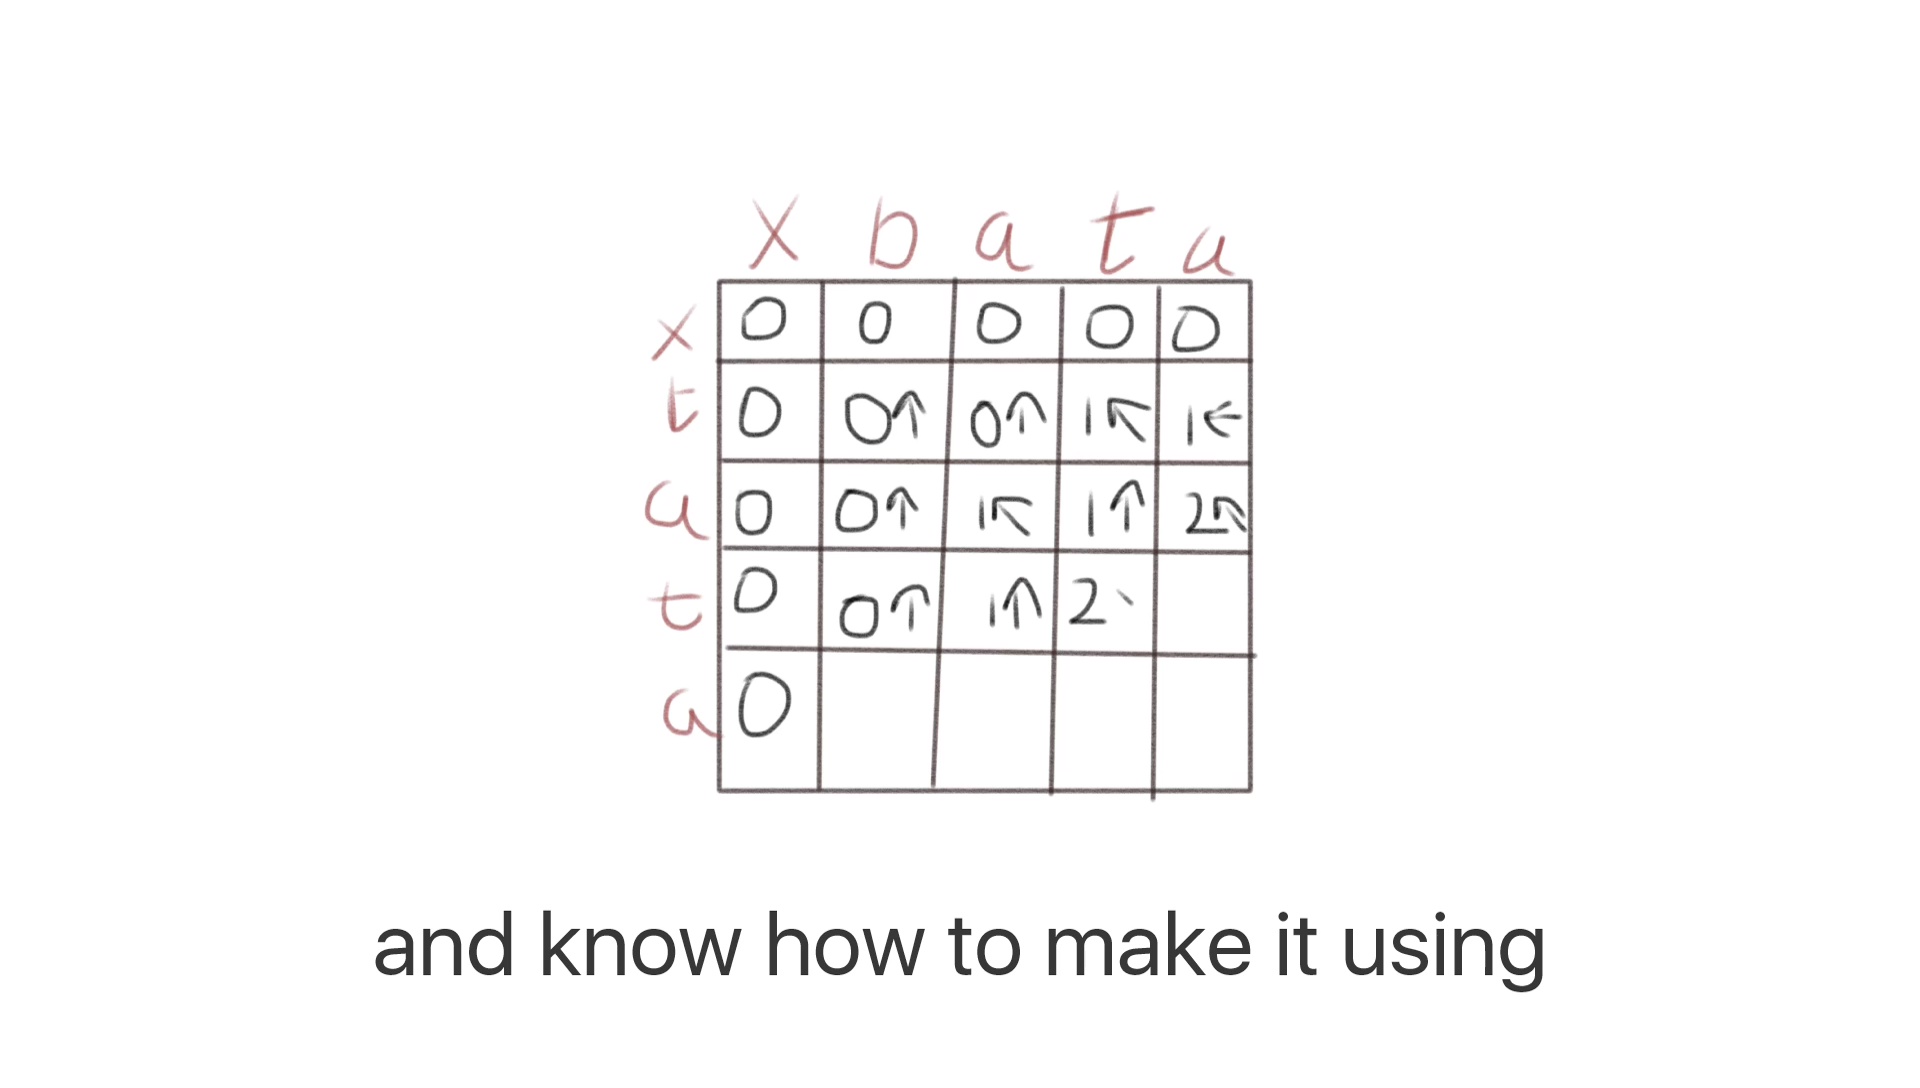 x b a t a
x 0 0 0 0 0
t 0 0↑ 0↑ 1↖ 1←
a 0 0↑ 1↖ 1↑ 2↖
t 0 0↑ 1↑ 2
a 0
and know how to make it using